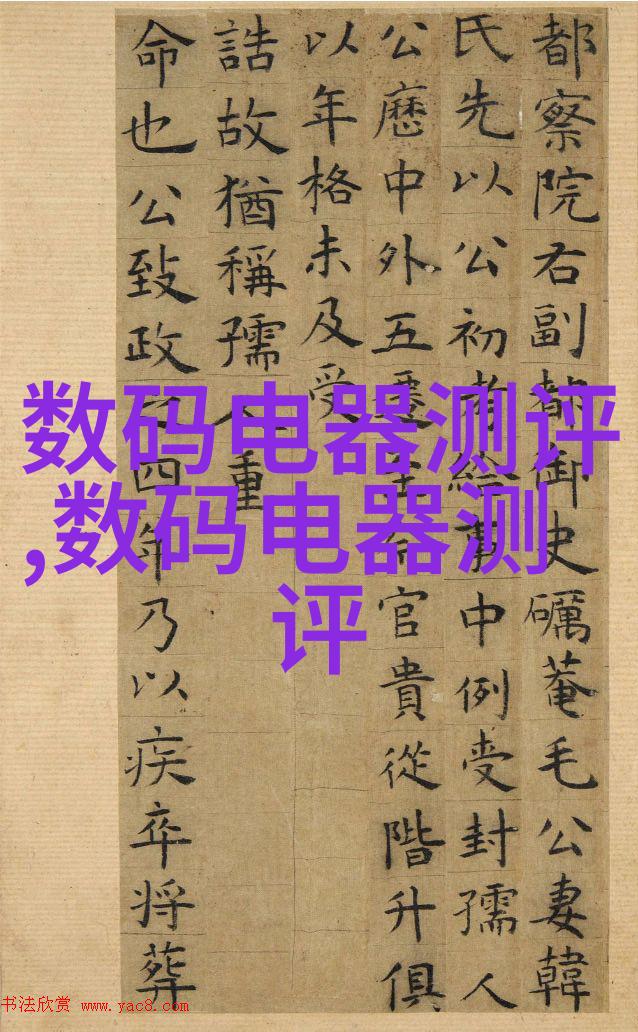 都察院右副都御史礪菴毛公妻韓
氏先以公初考給事中例受封孺人
公歷中外五遷至官貴從階升俱
以年格未及受
誥故猶稱孺人重
命也公致政四年乃以疾卒将葬
数码电器测评
,数码电器测
评
书法欣赏 www.yac8.com